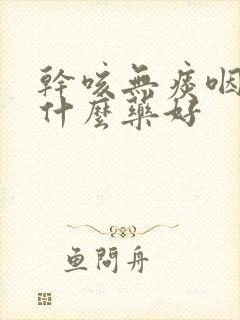 幹咳無痰咽
什麼藥好
鱼問舟